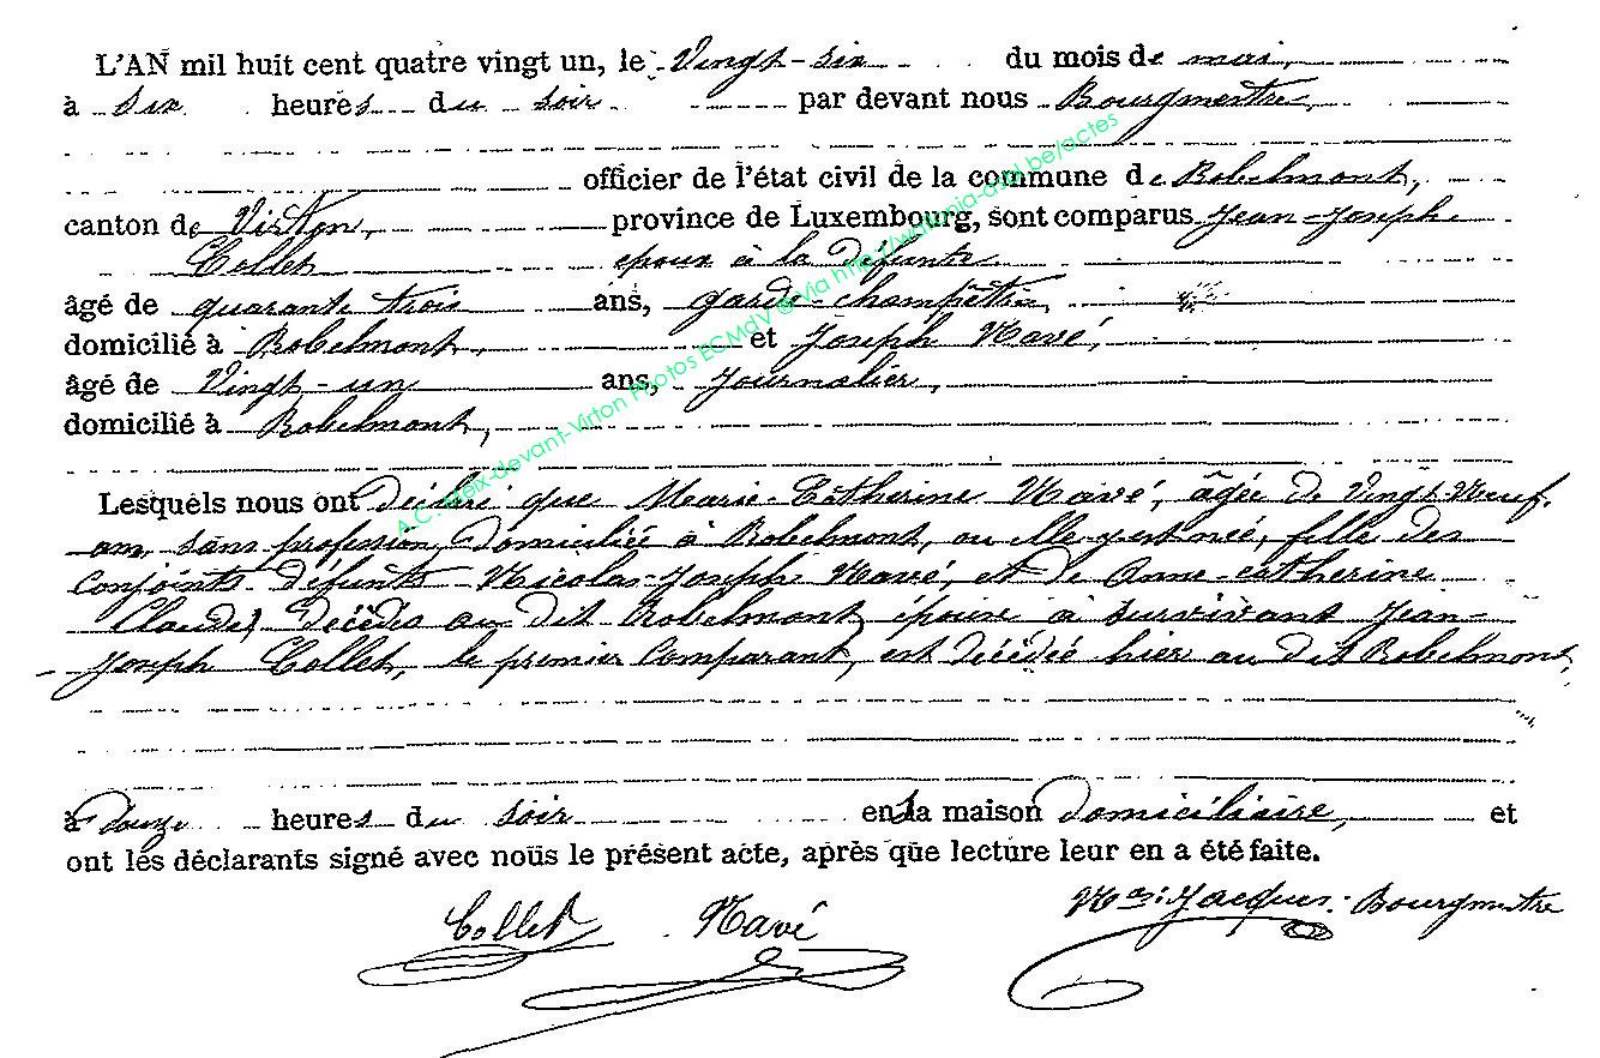 L'AN mil huit cent quatre vingt un, le Vingt-six du mois de mai,
à six heures du soir par devant nous Bourgmestre,
officier de l'état civil de la commune de Robelmont,
canton de Virton, province de Luxembourg, sont comparus Jean-Joseph
Collet époux à la défunte
âgé de quarante trois ans, garde-champêtre,
domicilié à Robelmont, et Joseph Navé,
âgé de Vingt-un ans, journalier,
domicilié à Robelmont,
Lesquels nous ont déclaré que Marie-Catherine Navé, âgée de Vingt-Neuf
ans, sans profession, domiciliée à Robelmont, où elle y est née, fille des
conjoints défunts Nicolas-Joseph Navé, et de Anne-catherine
Claude, décédés au dit Robelmont, épouse à survivant Jean-
Joseph Collet, le premier Comparant, est décédée hier au dit Robelmont,
à douze heures du soir en sa maison domiciliaire, et
ont les déclarants signé avec nous le présent acte, après que lecture leur en a été faite.
Collet Navé Jacques. Bourgmestre
A.C. Meix-devant-Virton Photos ECMdV @ Via http://wallonia-asbl.be/actes